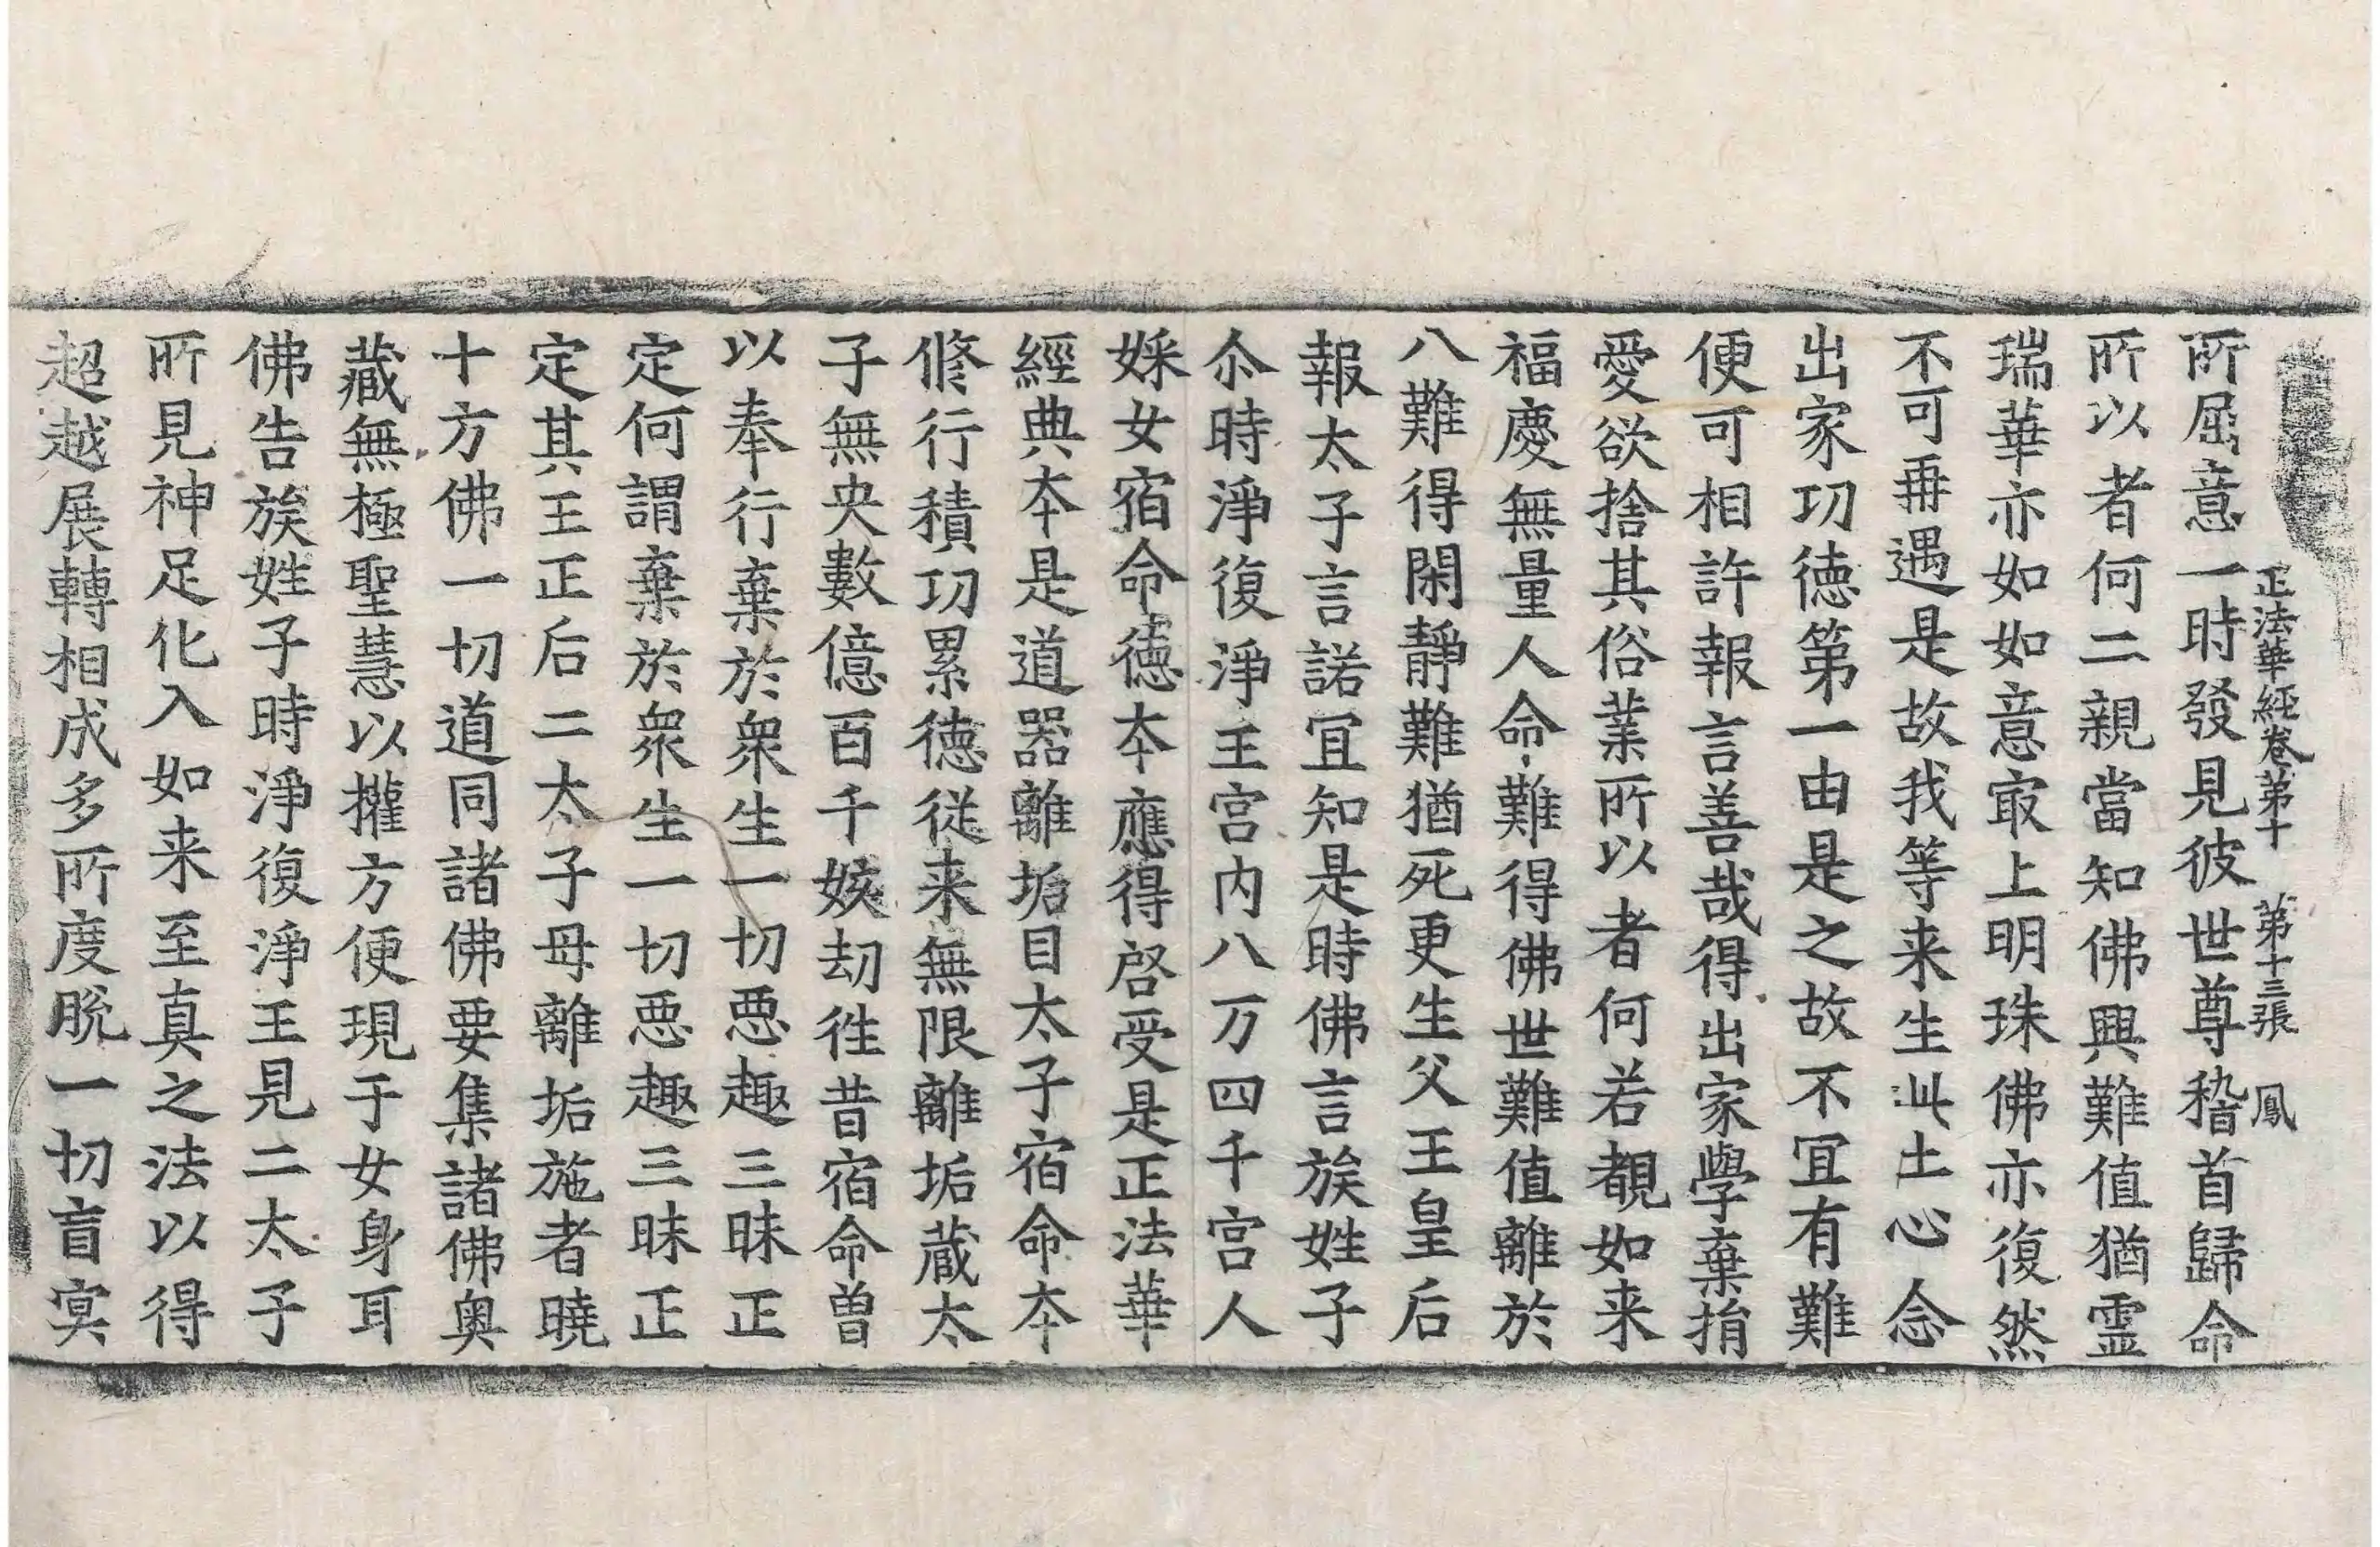 正法華經卷第十　第十三張　鳳
所屈意一時發見彼世尊稽首歸命
所以者何二親當知佛興難值猶霊
瑞華亦如如意㝡上明珠佛亦復然
不可再遇是故我等来生此土心念
出家功徳第一由是之故不冝有難
便可相許報言善哉得出家學棄捐
愛欲捨其俗業所以者何若覩如来
福慶無量人命難得佛世難值離於
八難得閑靜難猶死更生父王皇后
報太子言諾冝知是時佛言族姓子
尒時淨復淨王宫内八万四千宫人
婇女宿命徳夲應得啓受是正法華
經典夲是道器離垢目太子宿命夲
修行積功累徳従来無限離垢蔵太
子無央數億百千姟劫徃昔宿命曽
以奉行棄於衆生一切惡趣三昧正
定何謂棄於衆生一切惡趣三昧正
定其王正后二太子母離垢施者曉
十方佛一切道同諸佛要集諸佛奥
藏無極聖慧以權方便現于女身耳
佛告族姓子時淨復淨王見二太子
所見神足化入如来至真之法以得
超越展轉相成多所度脫一切盲冥